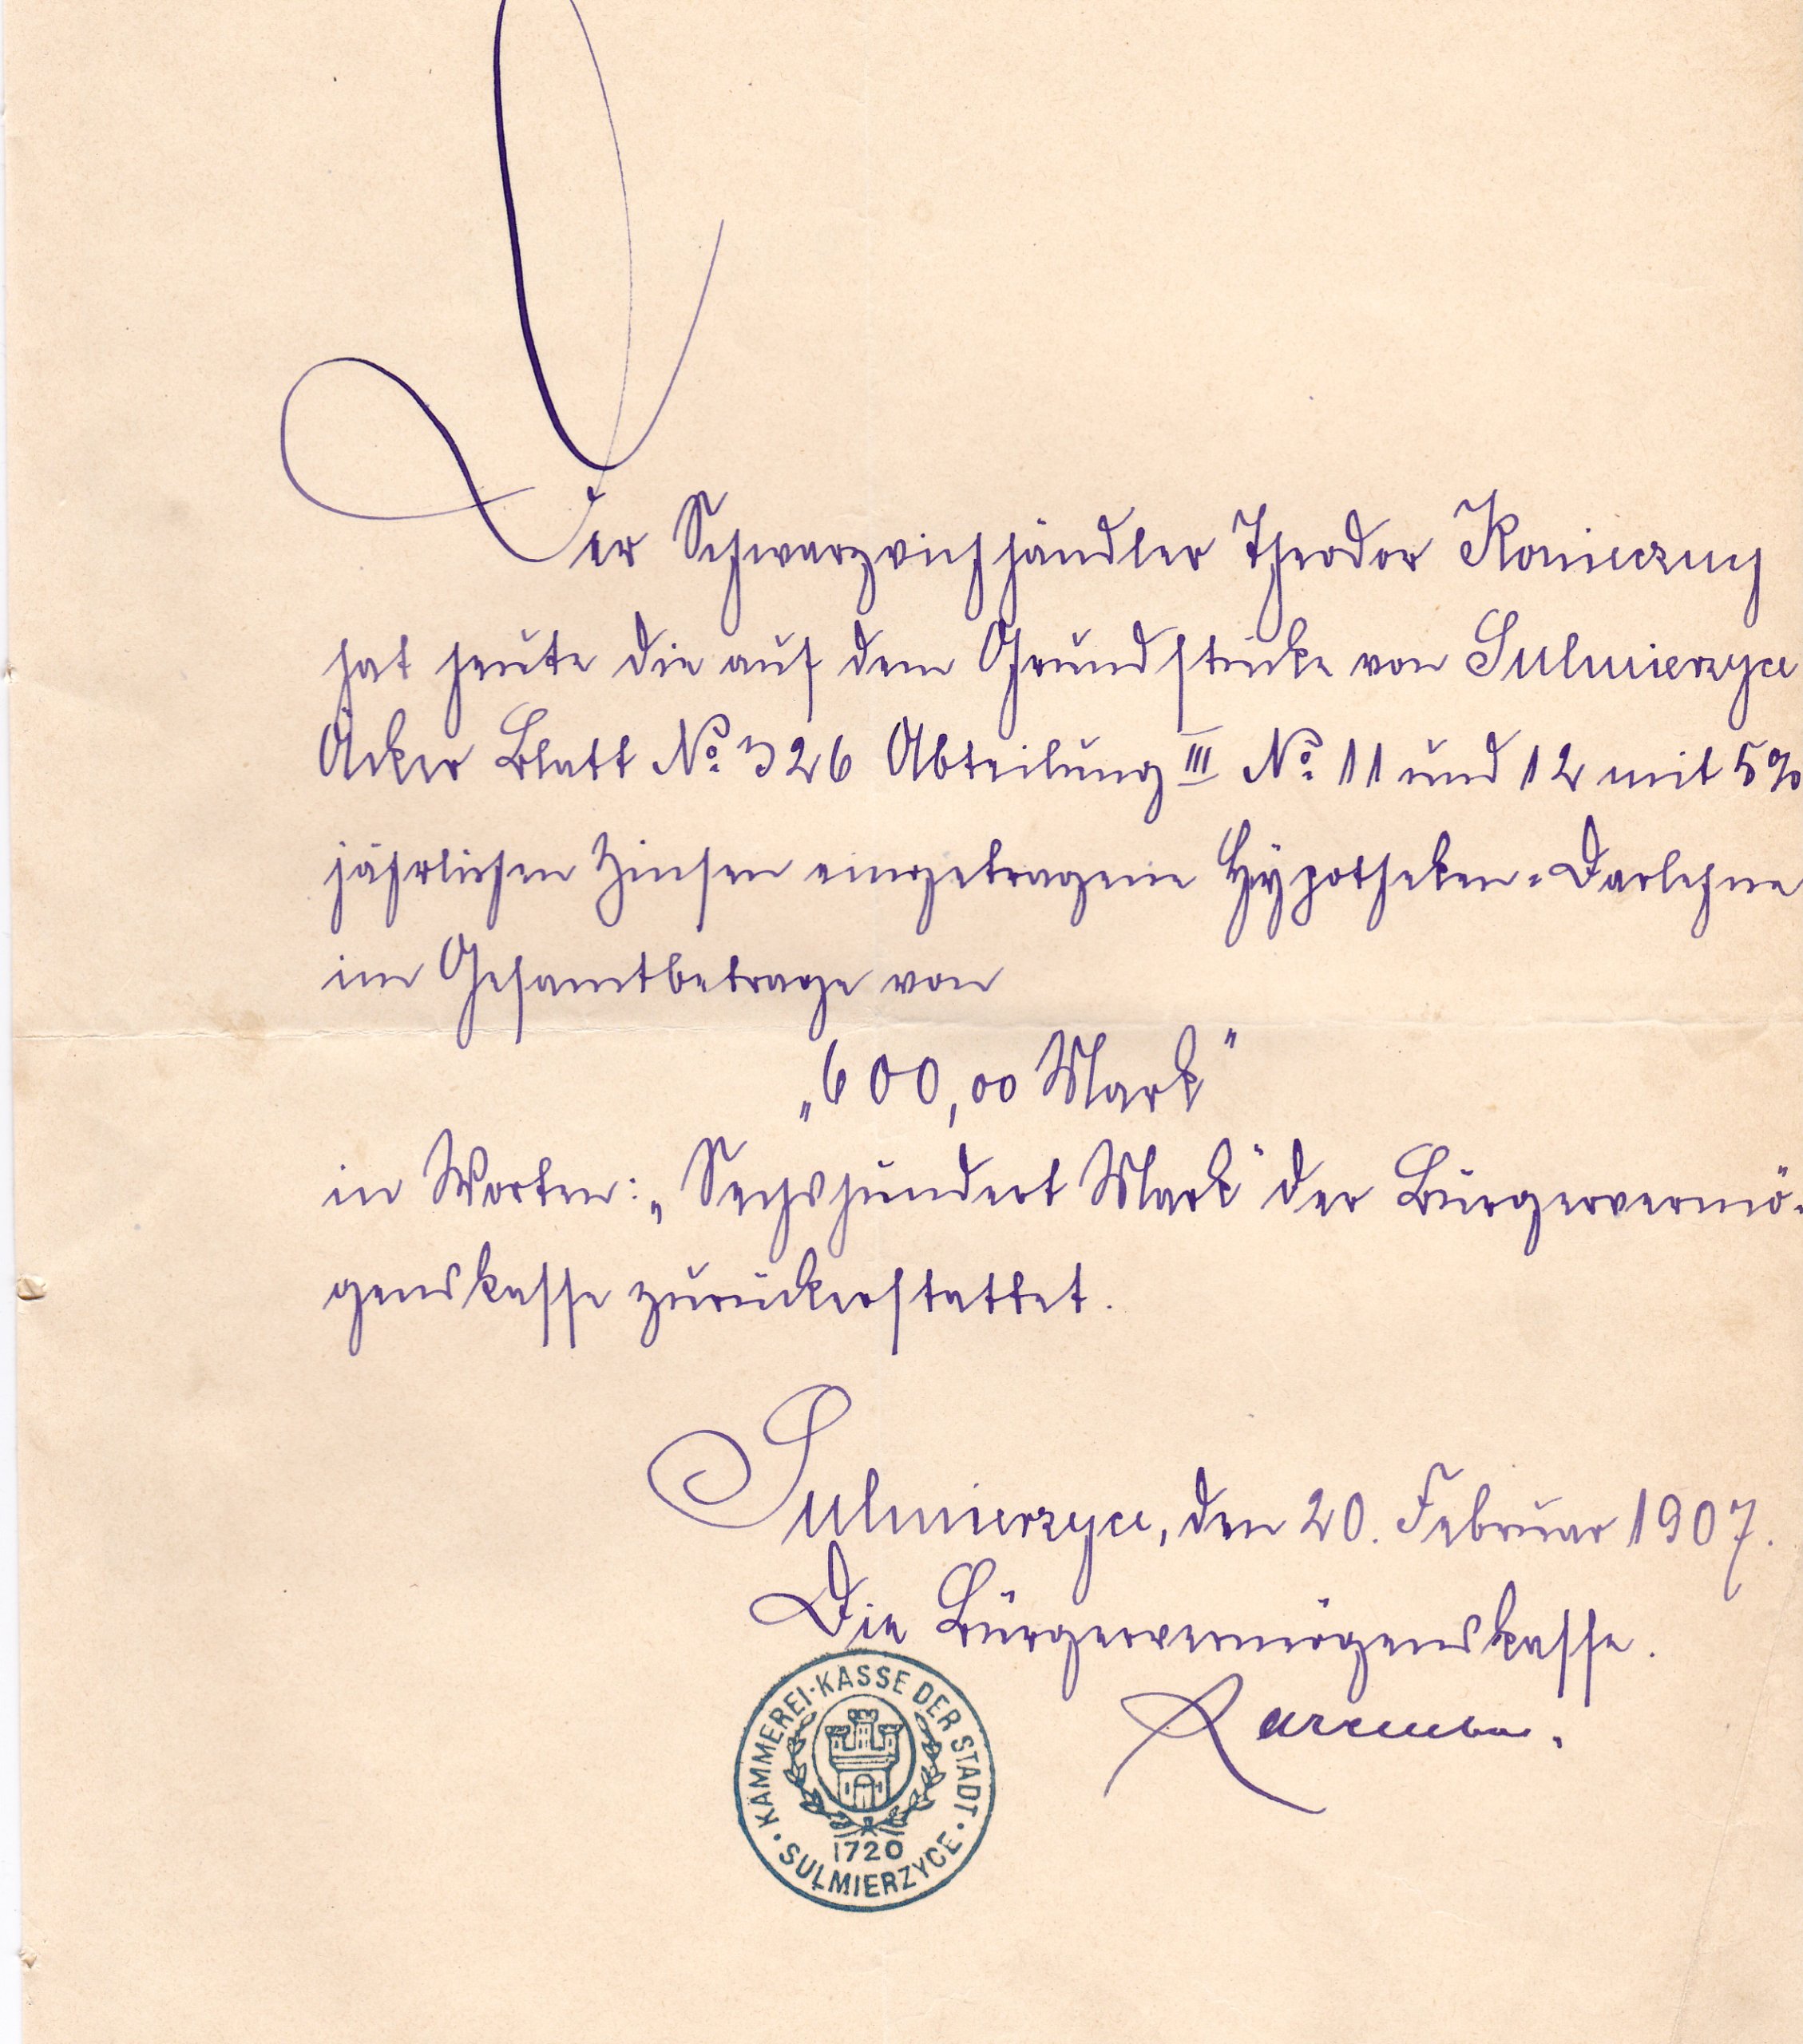 Der Schwarzviehhändler Theodor Konieczny
hat heute die auf dem Grundstücke von Sulmierzyce
Äcker Blatt No. 326 Abteilung III No. 11 und 12 mit 5%
jährlichen Zinsen eingetragene Hypotheken-Darlehne
im Gesamtbetrage von
„600,00 Mark"
in Worten: „Sechshundert Mark" der Bürgervermö-
genskasse zurückerstattet.
Sulmierzyce, den 20. Februar 1907.
Die Bürgervermögenskasse.
KÄMMEREI-KASSE DER STADT
1720
SULMIERZYCE